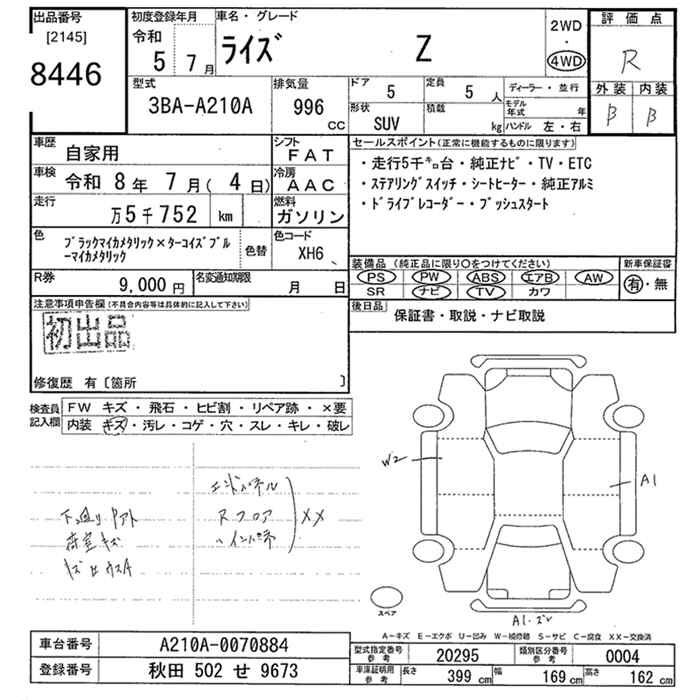 出品番号 [2145] 8446
初度登録年月 令和 5 7月
車名・グレード ライズ Z
2WD・4WD
評価点 R
外装 B 内装 B
型式 3BA-A210A
排気量 996 CC
ドア 5 定員 5 人
形状 SUV 積載 kg
ディーラー・並行
モデル年式 年
ハンドル 左・右
車歴 自家用
シフト FAT
車検 令和 8年 7月( 4日)
冷房 AAC
走行 万5千752 km
燃料 ガソリン
色 ブラックマイカメタリック×ターコイズブルーマイカメタリック
色替
色コード XH6
R券 9,000円
名変通知期限 月 日
セールスポイント(正常に機能するものに限ります)
・走行5千㌔台・純正ナビ・TV・ETC
・ステアリングスイッチ・シートヒーター・純正アルミ
・ドライブレコーダー・プッシュスタート
装備品 (純正品に限り〇をつけてください) 新車保証書
PS PW ABS エアB AW 有・無
SR ナビ TV カワ
後日品 保証書・取説・ナビ取説
注意事項申告欄(不具合内容等は具体的に記入して下さい)
初出品
修復歴 有〔箇所 〕
検査員記入欄
FW キズ・飛石・ヒビ割・リペア跡・×要
内装 キズ・汚レ・コゲ・穴・スレ・キレ・破レ
エンドパネル
Rフロア XX
下廻りサビ
荷室キズ
W2
A1
スペア
A1・ズレ
A-キズ E-エクボ U-凹み W-補修跡 S-サビ C-腐食 XX-交換済
車台番号 A210A-0070884
登録番号 秋田 502 せ 9673
型式指定番号 参考 20295 類別区分番号 参考 0004
車庫証明用 参考 長さ 399 cm 幅 169 cm 高さ 162 cm